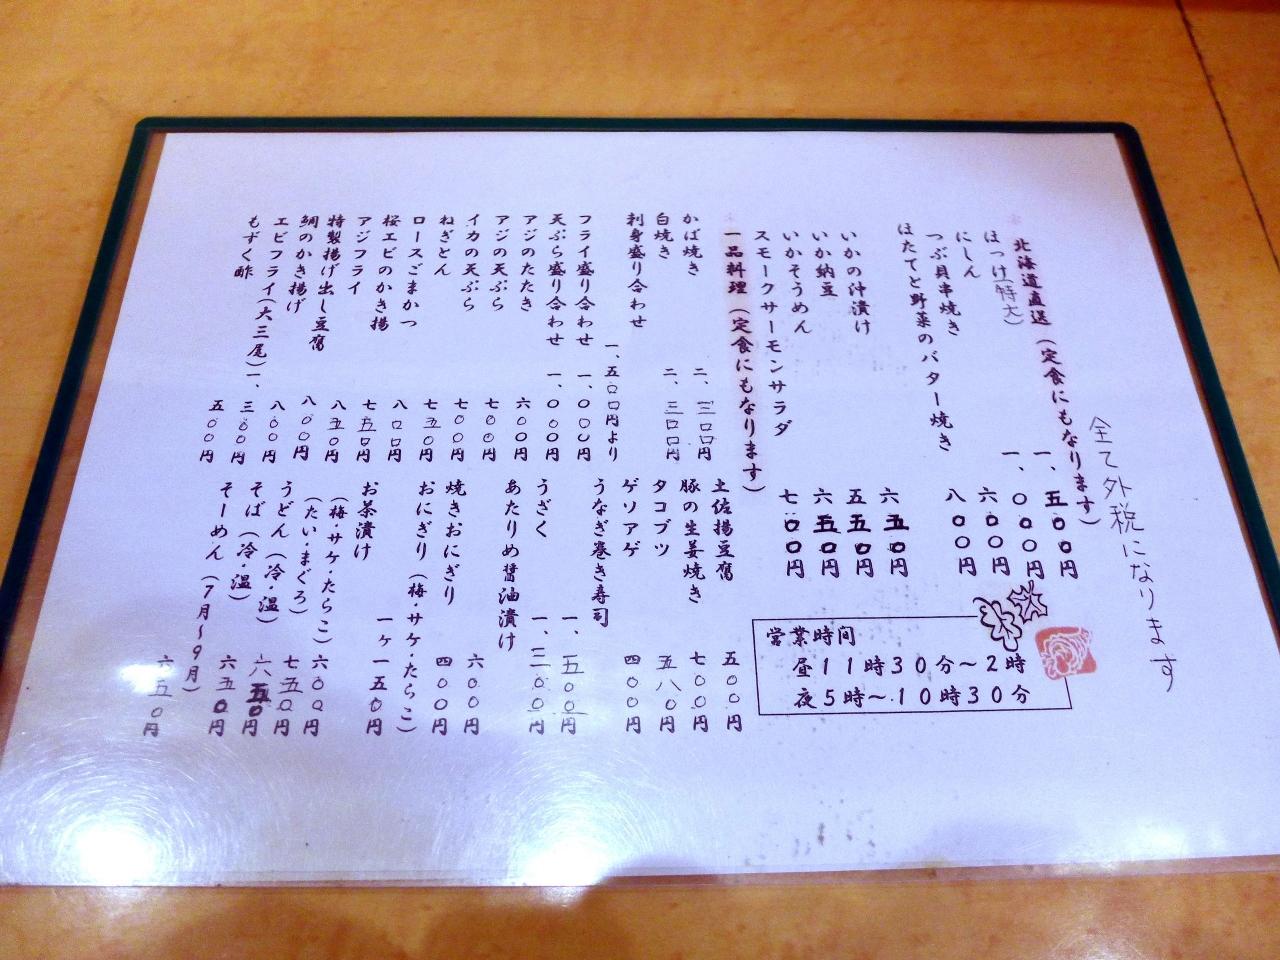 全て外税になります
＊北海道直送（定食にもなります）
ほっけ（特大） 一、五〇〇円
にしん 一、〇〇〇円
つぶ貝串焼き 六〇〇円
ほたてと野菜のバター焼き 八〇〇円
いかの沖漬け 六五〇円
いか納豆 五五〇円
いかそうめん 六五〇円
スモークサーモンサラダ 七〇〇円
＊一品料理（定食にもなります）
かば焼き 二、三〇〇円
白焼き 二、三〇〇円
刺身盛り合わせ 一、五〇〇円より
フライ盛り合わせ 一、〇〇〇円
天ぷら盛り合わせ 一、〇〇〇円
アジのたたき 六〇〇円
アジの天ぷら 七〇〇円
イカの天ぷら 七〇〇円
ねぎとん 七五〇円
ロースごまかつ 八〇〇円
桜エビのかき揚 七五〇円
アジフライ 八五〇円
特製揚げ出し豆腐 八〇〇円
鯛のかき揚げ 八〇〇円
エビフライ（大三尾） 一、三〇〇円
もずく酢 五〇〇円
土佐揚豆腐 五〇〇円
豚の生姜焼き 七〇〇円
タコブツ 五八〇円
ゲソアゲ 四〇〇円
うなぎ巻き寿司 一、五〇〇円
うざく 一、三〇〇円
あたりめ醤油漬け 六〇〇円
焼きおにぎり 四〇〇円
おにぎり（梅・サケ・たらこ）
一ヶ一五〇円
お茶漬け
（梅・サケ・たらこ） 六〇〇円
（たい・まぐろ） 七五〇円
うどん（冷・温） 六五〇円
そば（冷・温） 六五〇円
そーめん（7月〜9月） 六五〇円
営業時間
昼11時30分〜2時
夜5時〜10時30分